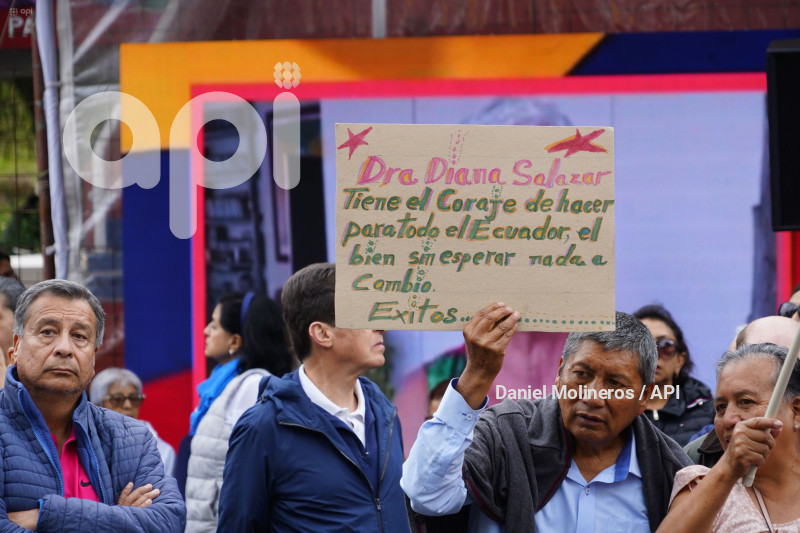 api
PA
api
Dra Diana Salazar
Tiene el Coraje de hacer
para todo el Ecuador, el
bien sin esperar nada a
Cambio.
Exitos...
Daniel Molineros / API